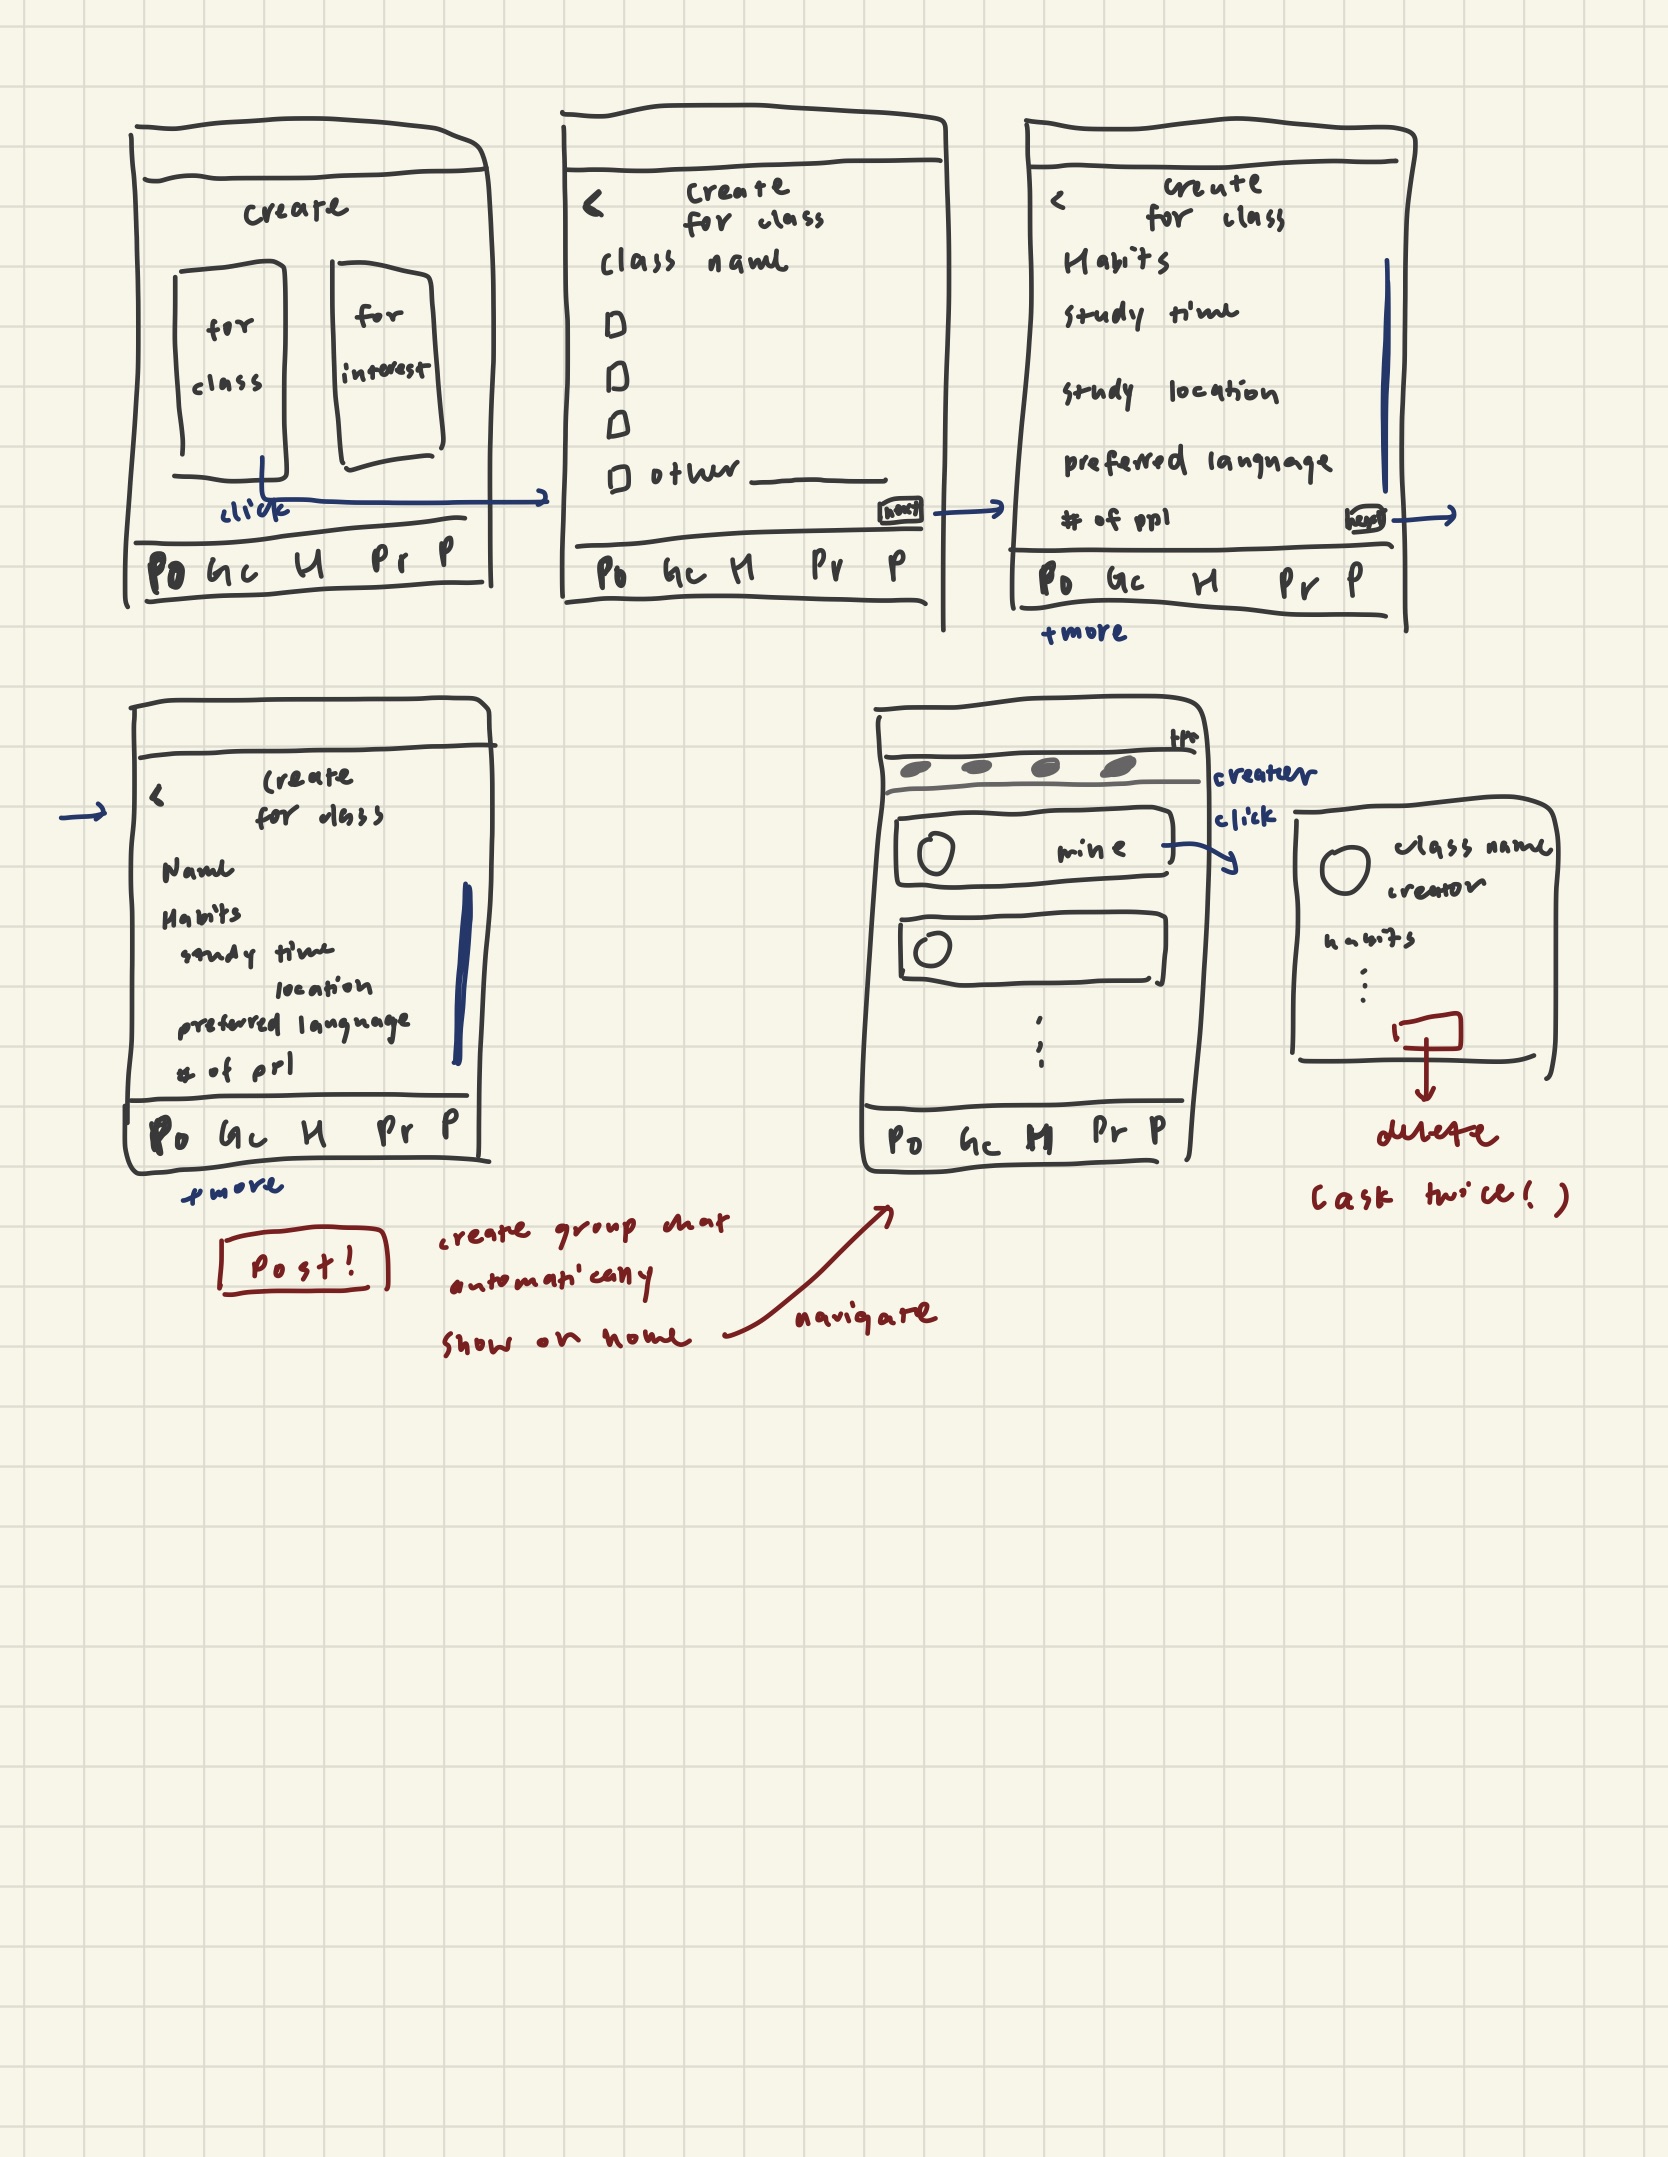 create
for
class
for
interest
click
Po Gc H Pr P
<
create
for class
class name
other
next
Po Gc H Pr P
<
create
for class
Habits
study time
study location
preferred language
# of ppl
next
Po Gc H Pr P
+more
<
create
for class
Name
Habits
study time
location
preferred language
# of ppl
Po Gc H Pr P
+more
Post!
create group chat
automatically
show on home
navigate
mine
Po Gc H Pr P
creater
click
class name
creator
habits
delete
(ask twice!)